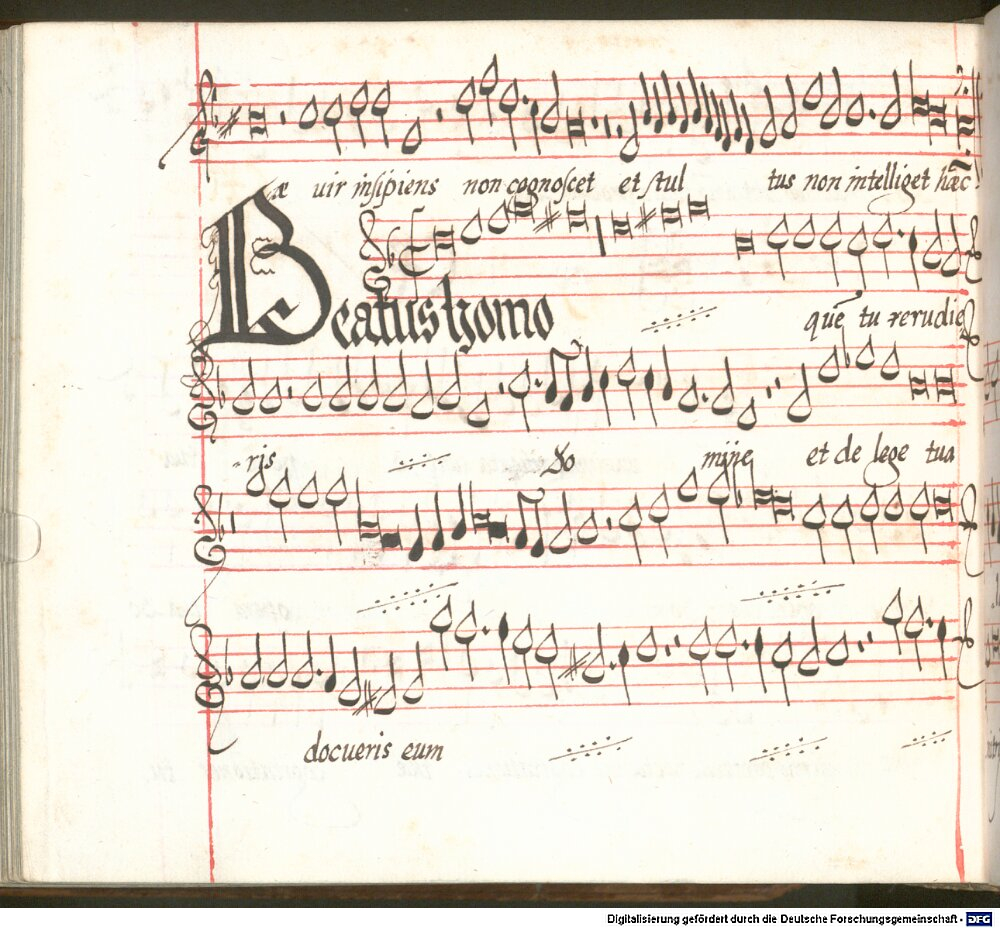 æ uir insipiens non cognoscet et stul tus non intelliget hæc
Beatus homo
quē tu rerudie
ris Do mine et de lege tua
docueris eum
Digitalisierung gefördert durch die Deutsche Forschungsgemeinschaft - DFG